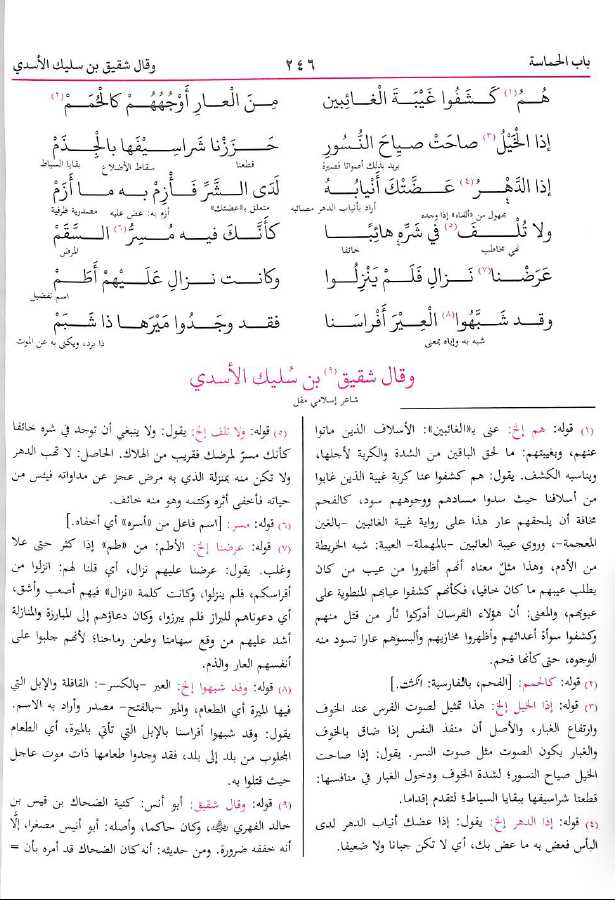 باب الحماسة ٢٤٦ وقال شقيق بن سليك الأسدي
هُمُ(١) كَشَفُوا غَيبَةَ الغَائِبين مِنَ الْعارِ أَوْجُهُهُمْ كالحُمَمْ(٢)
إذا الخَيْلُ(٣) صاحَتْ صياحَ النُّسُورِ حَزَزْنا شَراسِيْفَها بالجِذَمْ
يريد بذلك أصواتا قصيرة قطعنا سقاط الأضلاع بقايا السياط
إذا الدَّهْرُ(٤) عَضَّتْكَ أَنْيابُهُ لَدَى الشَّرِّ فَأْزِمْ به ما أزَمْ
أراد بأنياب الدهر مصائبه متعلق بـ«عضتك» أزم به: عض عليه مصدرية ظرفية
ولا تُلْفَ(٥) في شَرِّهِ هائِبًا كأنَّكَ فيه مُسِرُّ(٦) السَّقَمْ
مجهول من «ألفاه» إذا وجده
نهي مخاطب خائفا المرض
عَرَضْنا(٧) نَزالِ فَلَمْ يَنْزِلُوا وكانت نزالِ عَلَيْهمْ أَطَمّْ
اسم تفضيل
وقد شَبَّهُوا(٨) الْعِيْرَ أفْراسَنا فقد وجَدُوا مَيْرَها ذا شَبَمْ
شبه به وإياه بمعنى ذا برد، ويكنى به عن الموت
وقال شقيق(٩) بن سُليك الأسدي
شاعر إسلامي مقل
(١) قوله: هم إلخ: عنى بـ«الغائبين»: الأسلاف الذين ماتوا
عنهم، وبغيبتهم: ما لحق الباقين من الشدة والكربة لأجلها،
ويناسبه الكشف. يقول: هم كشفوا عنا كربة غيبة الذين غابوا
من أسلافنا حيث سدوا مسادهم ووجوههم سود، كالفحم
مخافة أن يلحقهم عار هذا على رواية غيبة الغائبين -بالغين
المعجمة-، وروي عيبة العائبين -بالمهملة- العيبة: شبه الخريطة
من الأدم، وهذا مثلٌ معناه أنهم أظهروا من عيب من كان
يطلب عيبهم ما كان خافيا، فكأنهم كشفوا عيابهم المنطوية على
عيوبهم، والمعنى: أن هؤلاء الفرسان أدركوا ثأر من قتل منهم
وكشفوا سوأة أعدائهم وأظهروا مخازيهم وألبسوهم عارا تسود منه
الوجوه، حتى كأنها فحم.
(٢) قوله: كالحمم: [الفحم، بالفارسية: انگشت.]
(٣) قوله: إذا الخيل إلخ: هذا تمثيل لصوت الفرس عند الخوف
وارتفاع الغبار، والأصل أن منفذ النفس إذا ضاق بالخوف
والغبار يكون الصوت مثل صوت النسر. يقول: إذا صاحت
الخيل صياح النسور؛ لشدة الخوف ودخول الغبار في منافسها:
قطعنا شراسيفها ببقايا السياط؛ لتقدم إقداما.
(٤) قوله: إذا الدهر إلخ: يقول: إذا عضك أنياب الدهر لدى
البأس فعض به ما عض بك، أي لا تكن جبانا ولا ضعيفا.
(٥) قوله: ولا تلف إلخ: يقول: ولا ينبغي أن توجد في شره خائفا
كأنك مسرّ لمرضك فقريب من الهلاك. الحاصل: لا تهب الدهر
ولا تكن منه بمنزلة الذي به مرض عجز عن مداواته فيئس من
حياته فأخفى أثره وكتمه وهو منه خائف.
(٦) قوله: مسر: [اسم فاعل من «أسره» أي أخفاه.]
(٧) قوله: عرضنا إلخ: الأطم: من «طم» إذا كثر حتى علا
وغلب. يقول: عرضنا عليهم نزال، أي قلنا لهم: انزلوا من
أفراسكم، فلم ينزلوا، وكانت كلمة «نزال» فيهم أصعب وأشق،
أي دعوناهم للبراز فلم يبرزوا، وكان دعاؤهم إلى المبارزة والمنازلة
أشد عليهم من وقع سهامنا وطعن رماحنا؛ لأنهم جلبوا على
أنفسهم العار والذم.
(٨) قوله: وقد شبهوا إلخ: العير -بالكسر-: القافلة والإبل التي
فيها الميرة أي الطعام، والمير -بالفتح- مصدر وأراد به الاسم.
يقول: وقد شبهوا أفراسنا بالإبل التي تأتي بالميرة، أي الطعام
المجلوب من بلد إلى بلد، فقد وجدوا طعامها ذات موت عاجل
حيث قتلوا به.
(٩) قوله: وقال شقيق: أبو أنس: كنية الضحاك بن قيس بن
خالد الفهري، وكان حاكما، وأصله: أبو أنيس مصغرا، إلَّا
أنه خففه ضرورة. ومن حديثه: أنه كان الضحاك قد أمره بأن =